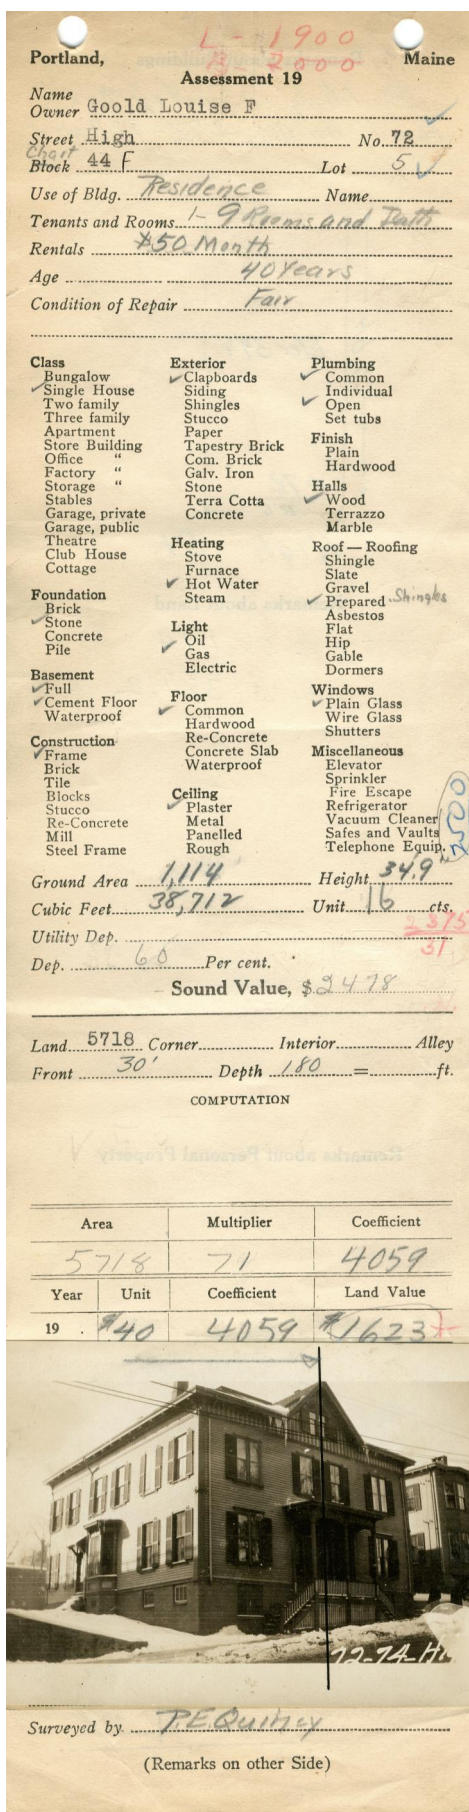 L - 1900
B 2000
Portland, Maine
Assessment 19
Name
Owner Goold Louise F
Street High No. 72
Chart
Block 44 F Lot 5
Use of Bldg. Residence Name
Tenants and Rooms 1- 9 Rooms and Bath
Rentals $50 Month
Age 40 Years
Condition of Repair Fair
Class
Bungalow
✓ Single House
Two family
Three family
Apartment
Store Building
Office "
Factory "
Storage "
Stables
Garage, private
Garage, public
Theatre
Club House
Cottage
Foundation
Brick
✓ Stone
Concrete
Pile
Basement
✓ Full
✓ Cement Floor
Waterproof
Construction
✓ Frame
Brick
Tile
Blocks
Stucco
Re-Concrete
Mill
Steel Frame
Exterior
✓ Clapboards
Siding
Shingles
Stucco
Paper
Tapestry Brick
Com. Brick
Galv. Iron
Stone
Terra Cotta
Concrete
Heating
Stove
Furnace
✓ Hot Water
Steam
Light
Oil
✓ Gas
Electric
Floor
✓ Common
Hardwood
Re-Concrete
Concrete Slab
Waterproof
Ceiling
✓ Plaster
Metal
Panelled
Rough
Plumbing
✓ Common
Individual
✓ Open
Set tubs
Finish
Plain
Hardwood
Halls
✓ Wood
Terrazzo
Marble
Roof — Roofing
Shingle
Slate
Gravel
✓ Prepared Shingles
Asbestos
Flat
Hip
Gable
Dormers
Windows
✓ Plain Glass
Wire Glass
Shutters
Miscellaneous
Elevator
Sprinkler
Fire Escape
Refrigerator
Vacuum Cleaner
Safes and Vaults
Telephone Equip.
2500
Ground Area 1,114 Height 34.9"
Cubic Feet 38,712 Unit 16 cts.
2375
31
Utility Dep.
Dep. 60 Per cent.
Sound Value, $ 2478
Land 5718 Corner Interior Alley
Front 30' Depth 180 = ft.
COMPUTATION
Area Multiplier Coefficient
5718 71 4059
Year Unit Coefficient Land Value
19 . $40 4059 $1623
72-74-H
Surveyed by P.E. Quincy
(Remarks on other Side)